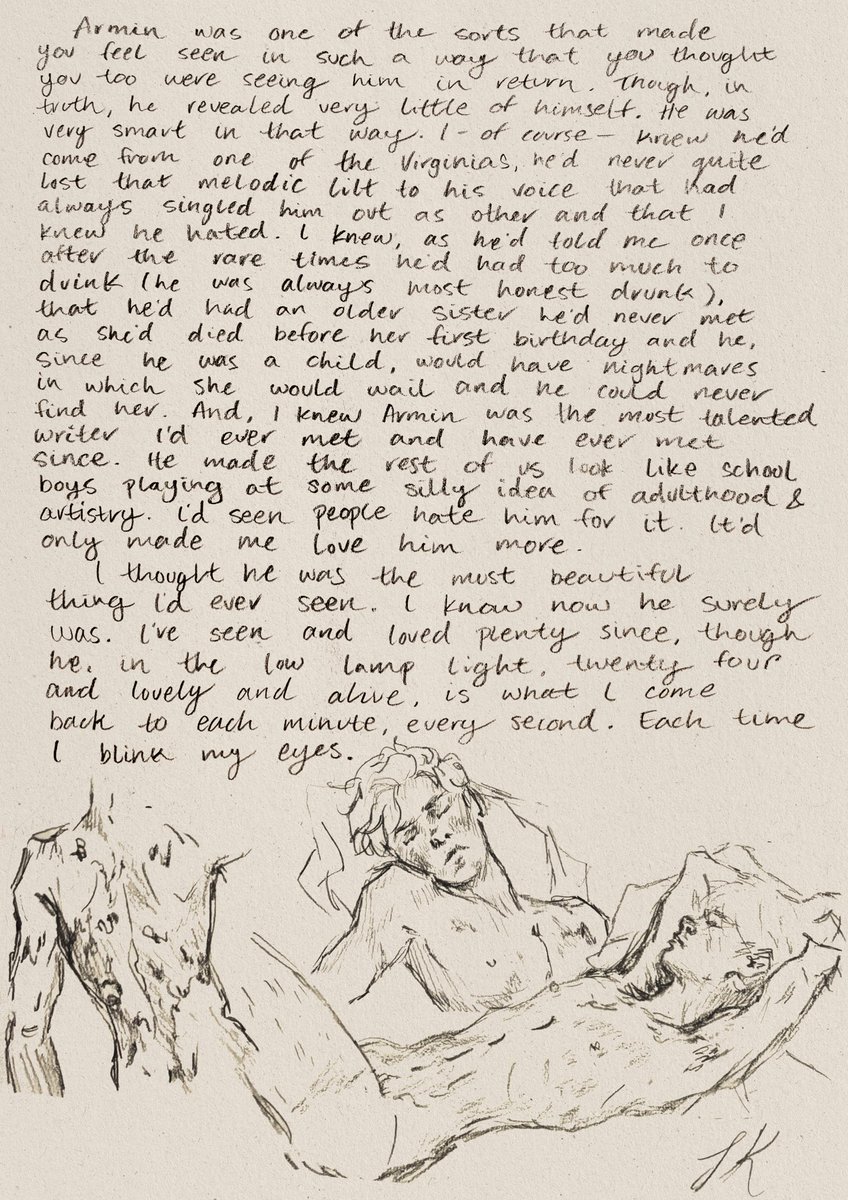 Armin was one of the sorts that made
you feel seen in such a way that you thought
you too were seeing him in return. Though, in
truth, he revealed very little of himself. He was
very smart in that way. I - of course - knew he'd
come from one of the Virginias, he'd never quite
lost that melodic lilt to his voice that had
always singled him out as other and that I
knew he hated. I knew, as he'd told me once
after the rare times he'd had too much to
drink (he was always most honest drunk),
that he'd had an older sister he'd never met
as she'd died before her first birthday and he,
since he was a child, would have nightmares
in which she would wail and he could never
find her. And, I knew Armin was the most talented
writer I'd ever met and have ever met
since. He made the rest of us look like school
boys playing at some silly idea of adulthood &
artistry. I'd seen people hate him for it. It'd
only made me love him more.
I thought he was the most beautiful
thing I'd ever seen. I know now he surely
was. I've seen and loved plenty since, though
he, in the low lamp light, twenty four
and lovely and alive, is what I come
back to each minute, every second. Each time
I blink my eyes.